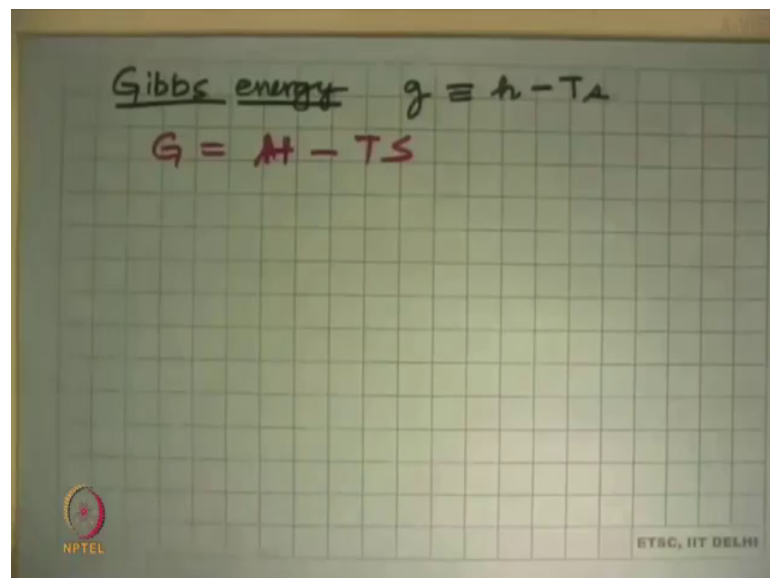 Gibbs energy g ≡ h - Ts
G = H - TS
NPTEL
ETSC, IIT DELHI